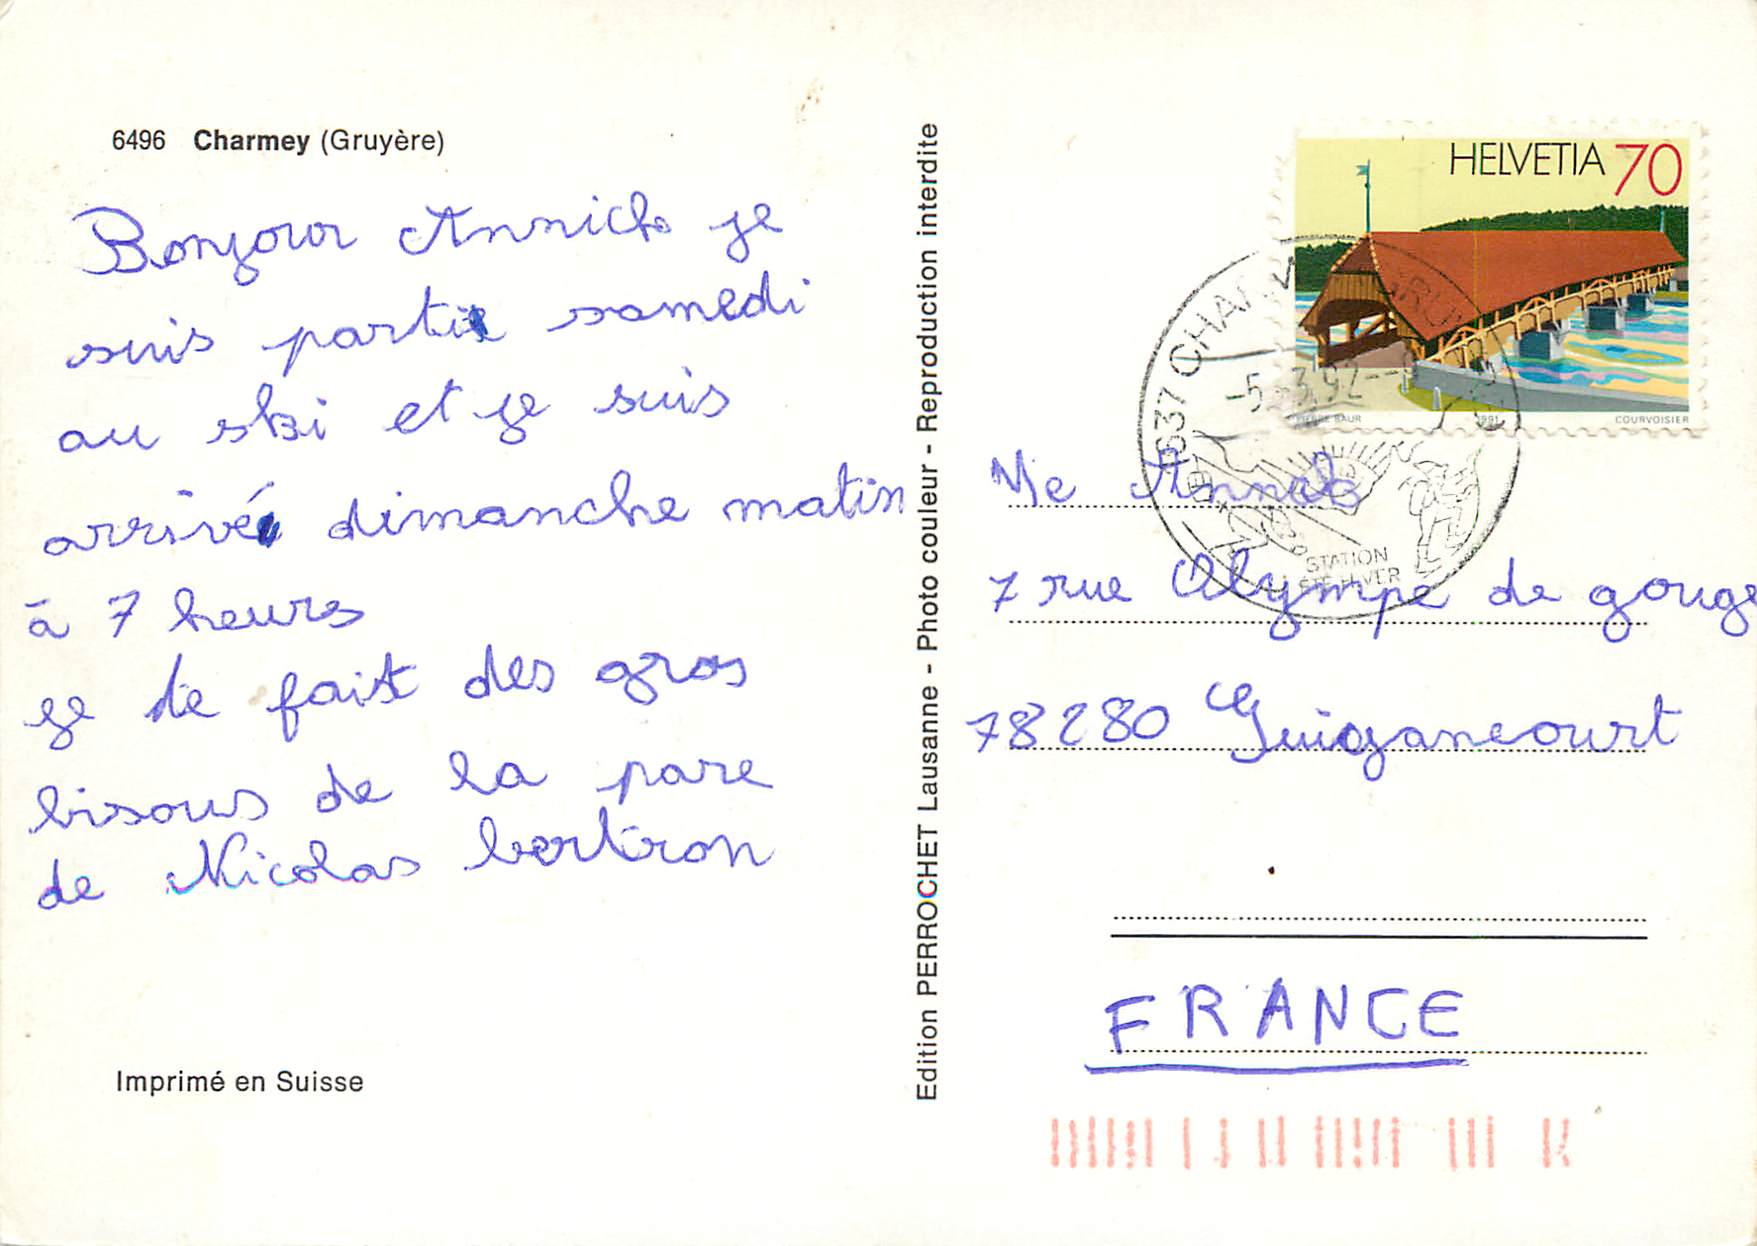 6496 Charmey (Gruyère)
Bonjour Annick je
suis partie samedi
au ski et je suis
arrivé dimanche matin
à 7 heurs
je te fait des gros
bisous de la pare
de Nicolas bertron
Imprimé en Suisse
Edition PERROCHET Lausanne - Photo couleur - Reproduction interdite
HELVETIA 70
PIERRE BAUR 1991 COURVOISIER
1637 CHARMEY
-5.-3.92--
STATION
ÉTÉ HIVER
Me Annick
7 rue Olympe de gouge
78280 Guigancourt
FRANCE